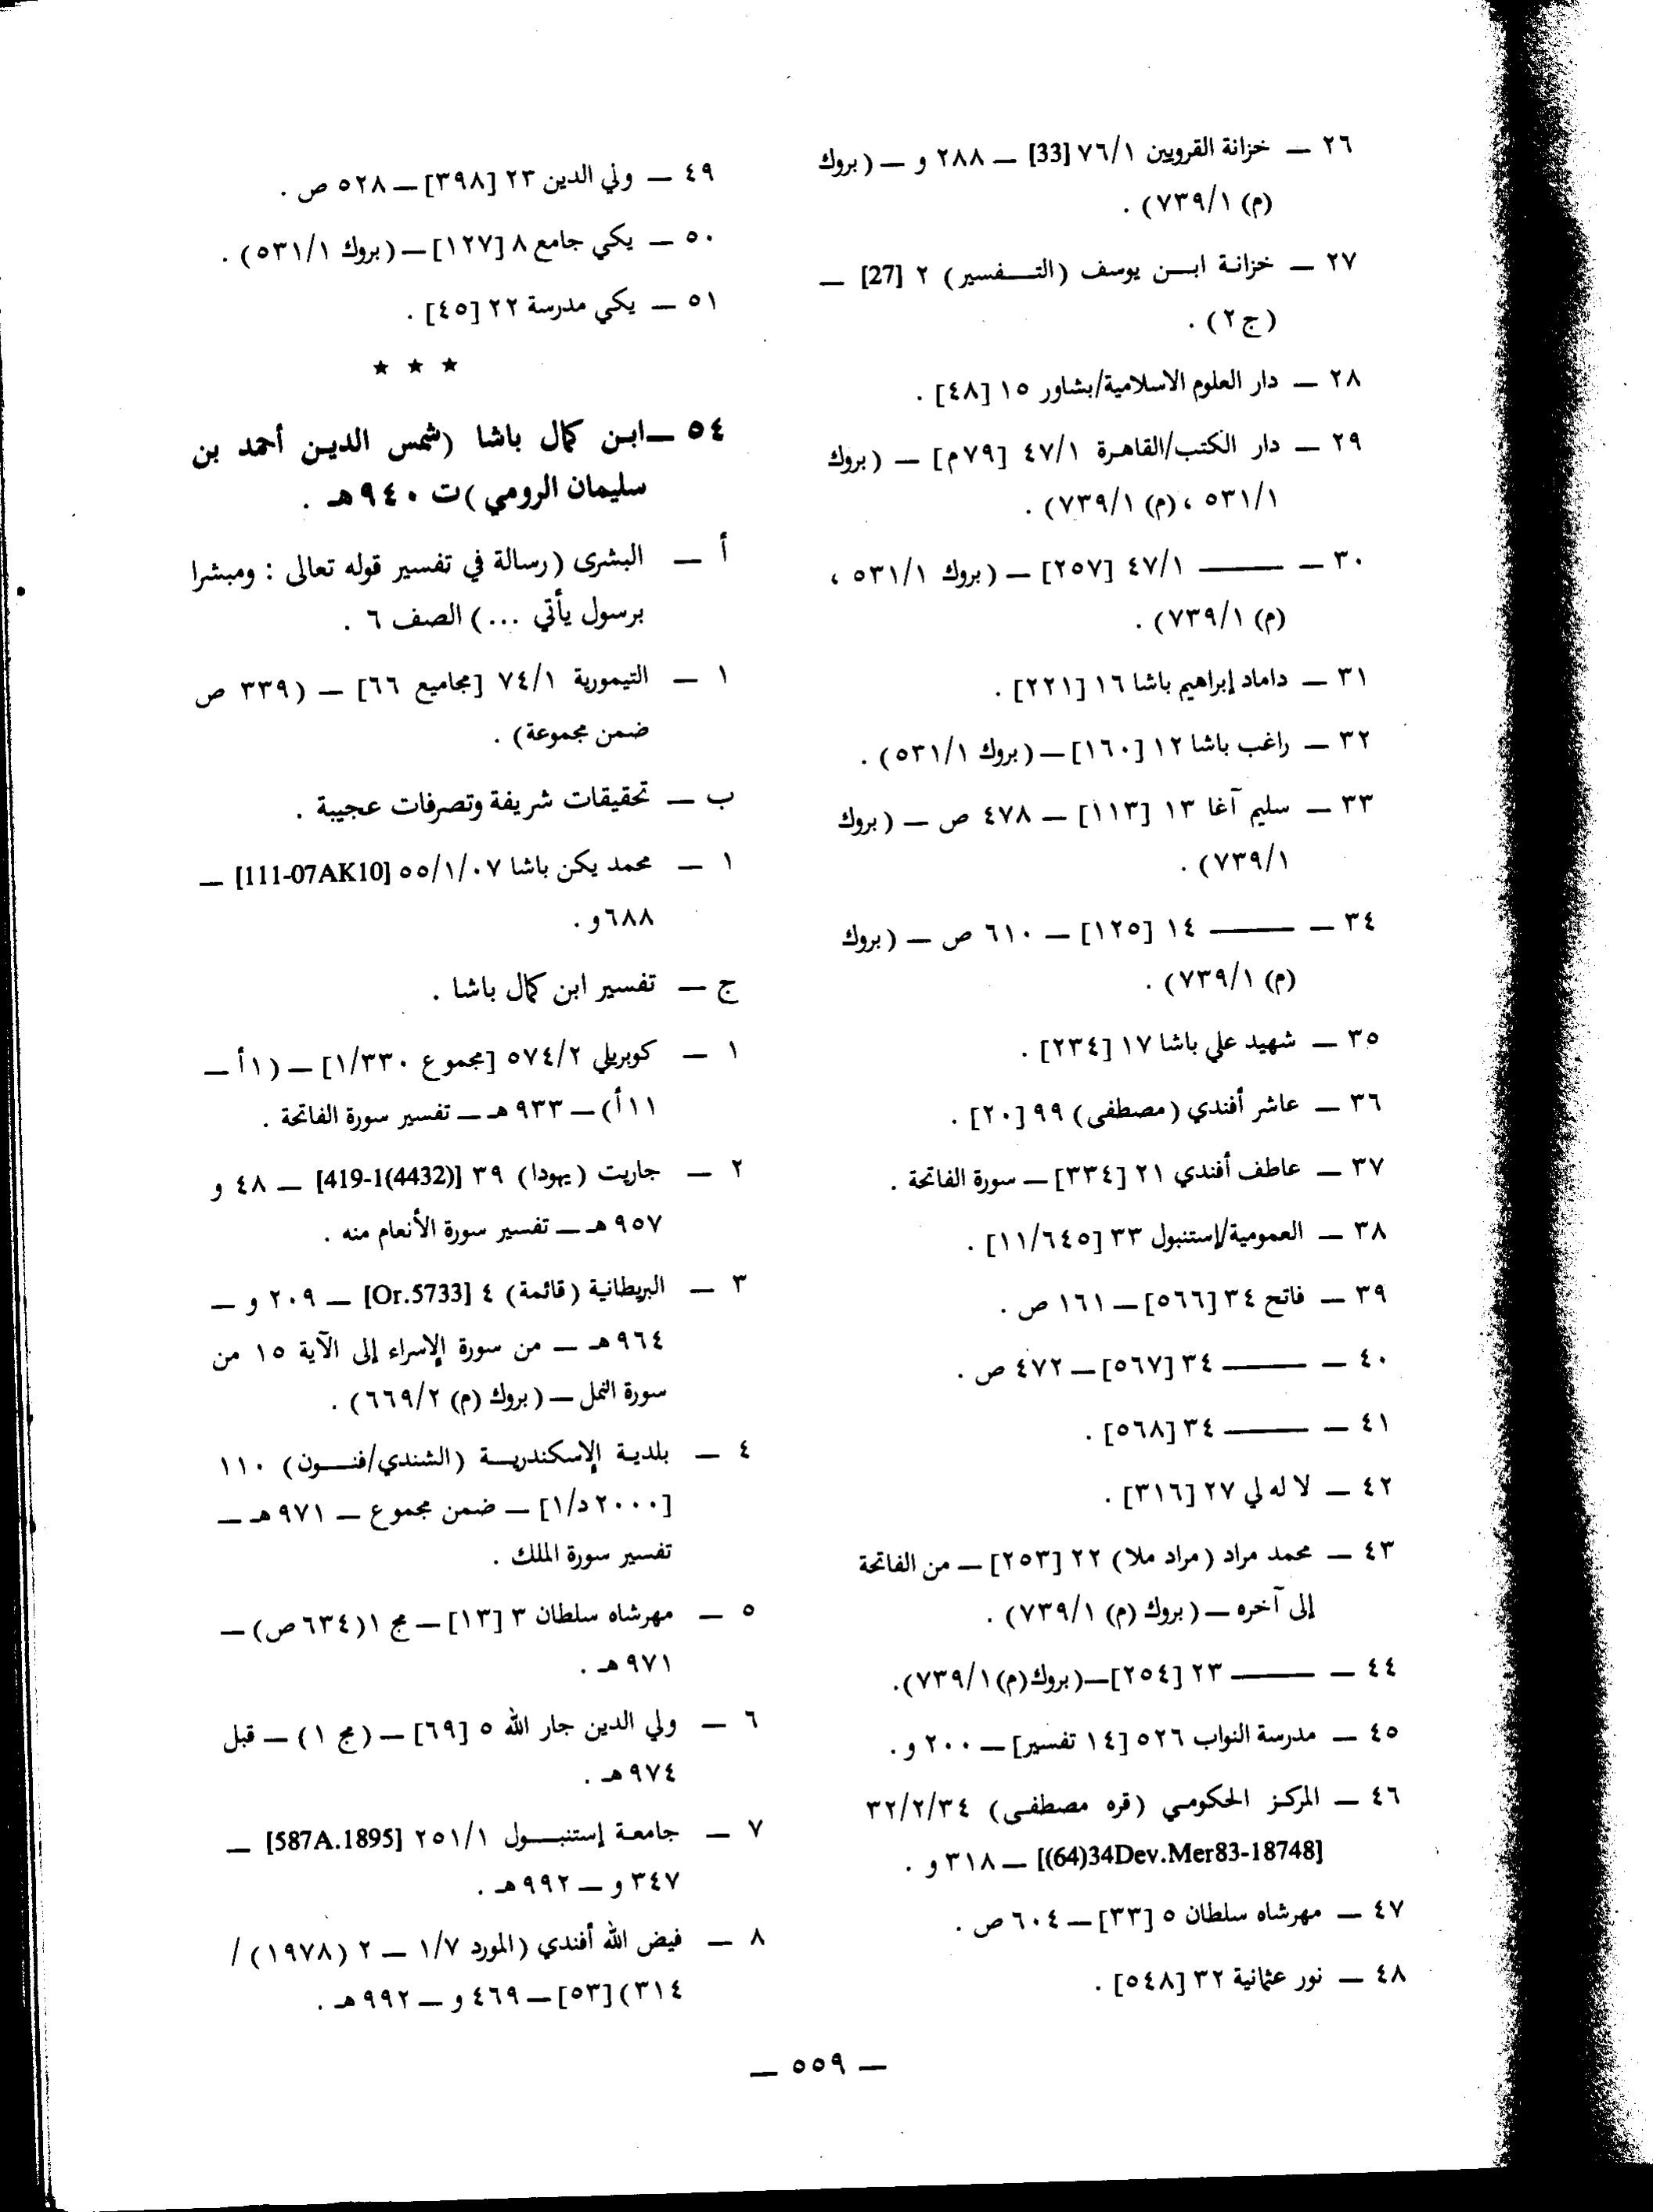 ٢٦ — خزانة القرويين ٧٦/١ [33] — ٢٨٨ و — (بروك
(م) ٧٣٩/١) .
٢٧ — خزانة ابن يوسف (التفسير) ٢ [27] —
(ج ٢) .
٢٨ — دار العلوم الاسلامية/بشاور ١٥ [٤٨] .
٢٩ — دار الكتب/القاهرة ٤٧/١ [٧٩م] — (بروك
٥٣١/١ ، (م) ٧٣٩/١) .
٣٠ — ——— ٤٧/١ [٢٥٧] — (بروك ٥٣١/١ ،
(م) ٧٣٩/١) .
٣١ — داماد إبراهيم باشا ١٦ [٢٢١] .
٣٢ — راغب باشا ١٢ [١٦٠] — (بروك ٥٣١/١) .
٣٣ — سليم آغا ١٣ [١١٣] — ٤٧٨ ص — (بروك
٧٣٩/١) .
٣٤ — ——— ١٤ [١٢٥] — ٦١٠ ص — (بروك
(م) ٧٣٩/١) .
٣٥ — شهيد علي باشا ١٧ [٢٣٤] .
٣٦ — عاشر أفندي (مصطفى) ٩٩ [٢٠] .
٣٧ — عاطف أفندي ٢١ [٣٣٤] — سورة الفاتحة .
٣٨ — العمومية/إستنبول ٣٣ [١١/٦٤٥] .
٣٩ — فاتح ٣٤ [٥٦٦] — ١٦١ ص .
٤٠ — ——— ٣٤ [٥٦٧] — ٤٧٢ ص .
٤١ — ——— ٣٤ [٥٦٨] .
٤٢ — لا له لي ٢٧ [٣١٦] .
٤٣ — محمد مراد (مراد ملا) ٢٢ [٢٥٣] — من الفاتحة
إلى آخره — (بروك (م) ٧٣٩/١) .
٤٤ — ——— ٢٣ [٢٥٤] — (بروك (م) ٧٣٩/١).
٤٥ — مدرسة النواب ٥٢٦ [١٤ تفسير] — ٢٠٠ و .
٤٦ — المركز الحكومي (قره مصطفى) ٣٢/٢/٣٤
[(64)34Dev.Mer83-18748] — ٣١٨ و .
٤٧ — مهرشاه سلطان ٥ [٣٣] — ٦٠٤ ص .
٤٨ — نور عثمانية ٣٢ [٥٤٨] .
٤٩ — ولي الدين ٢٣ [٣٩٨] — ٥٢٨ ص .
٥٠ — يكي جامع ٨ [١٢٧] — (بروك ٥٣١/١) .
٥١ — يكي مدرسة ٢٢ [٤٥] .
★ ★ ★
٥٤ — ابن كمال باشا (شمس الدين أحمد بن
سليمان الرومي) ت ٩٤٠ هـ .
أ — البشرى (رسالة في تفسير قوله تعالى : ومبشرا
برسول يأتي ...) الصف ٦ .
١ — التيمورية ٧٤/١ [مجاميع ٦٦] — (٣٣٩ ص
ضمن مجموعة) .
ب — تحقيقات شريفة وتصرفات عجيبة .
١ — محمد يكن باشا ٥٥/١/٠٧ [111-07AK10] —
٦٨٨ و .
ج — تفسير ابن كمال باشا .
١ — كوبريلي ٥٧٤/٢ [مجموع ١/٣٣٠] — (١ أ —
١١ أ) — ٩٣٣ هـ — تفسير سورة الفاتحة .
٢ — جاريت (يهودا) ٣٩ [419-1(4432)] — ٤٨ و
٩٥٧ هـ — تفسير سورة الأنعام منه .
٣ — البريطانية (قائمة) ٤ [Or.5733] — ٢٠٩ و —
٩٦٤ هـ — من سورة الإسراء إلى الآية ١٥ من
سورة النمل — (بروك (م) ٦٦٩/٢) .
٤ — بلدية الإسكندرية (الشندي/فنون) ١١٠
[٢٠٠٠ د/١] — ضمن مجموع — ٩٧١ هـ —
تفسير سورة الملك .
٥ — مهرشاه سلطان ٣ [١٣] — مج ١ (٦٣٤ ص) —
٩٧١ هـ .
٦ — ولي الدين جار الله ٥ [٦٩] — (مج ١) — قبل
٩٧٤ هـ .
٧ — جامعة إستنبول ٢٥١/١ [587A.1895] —
٣٤٧ و — ٩٩٢ هـ .
٨ — فيض الله أفندي (المورد ١/٧ — ٢ (١٩٧٨) /
٣١٤) [٥٣] — ٤٦٩ و — ٩٩٢ هـ .
— ٥٥٩ —